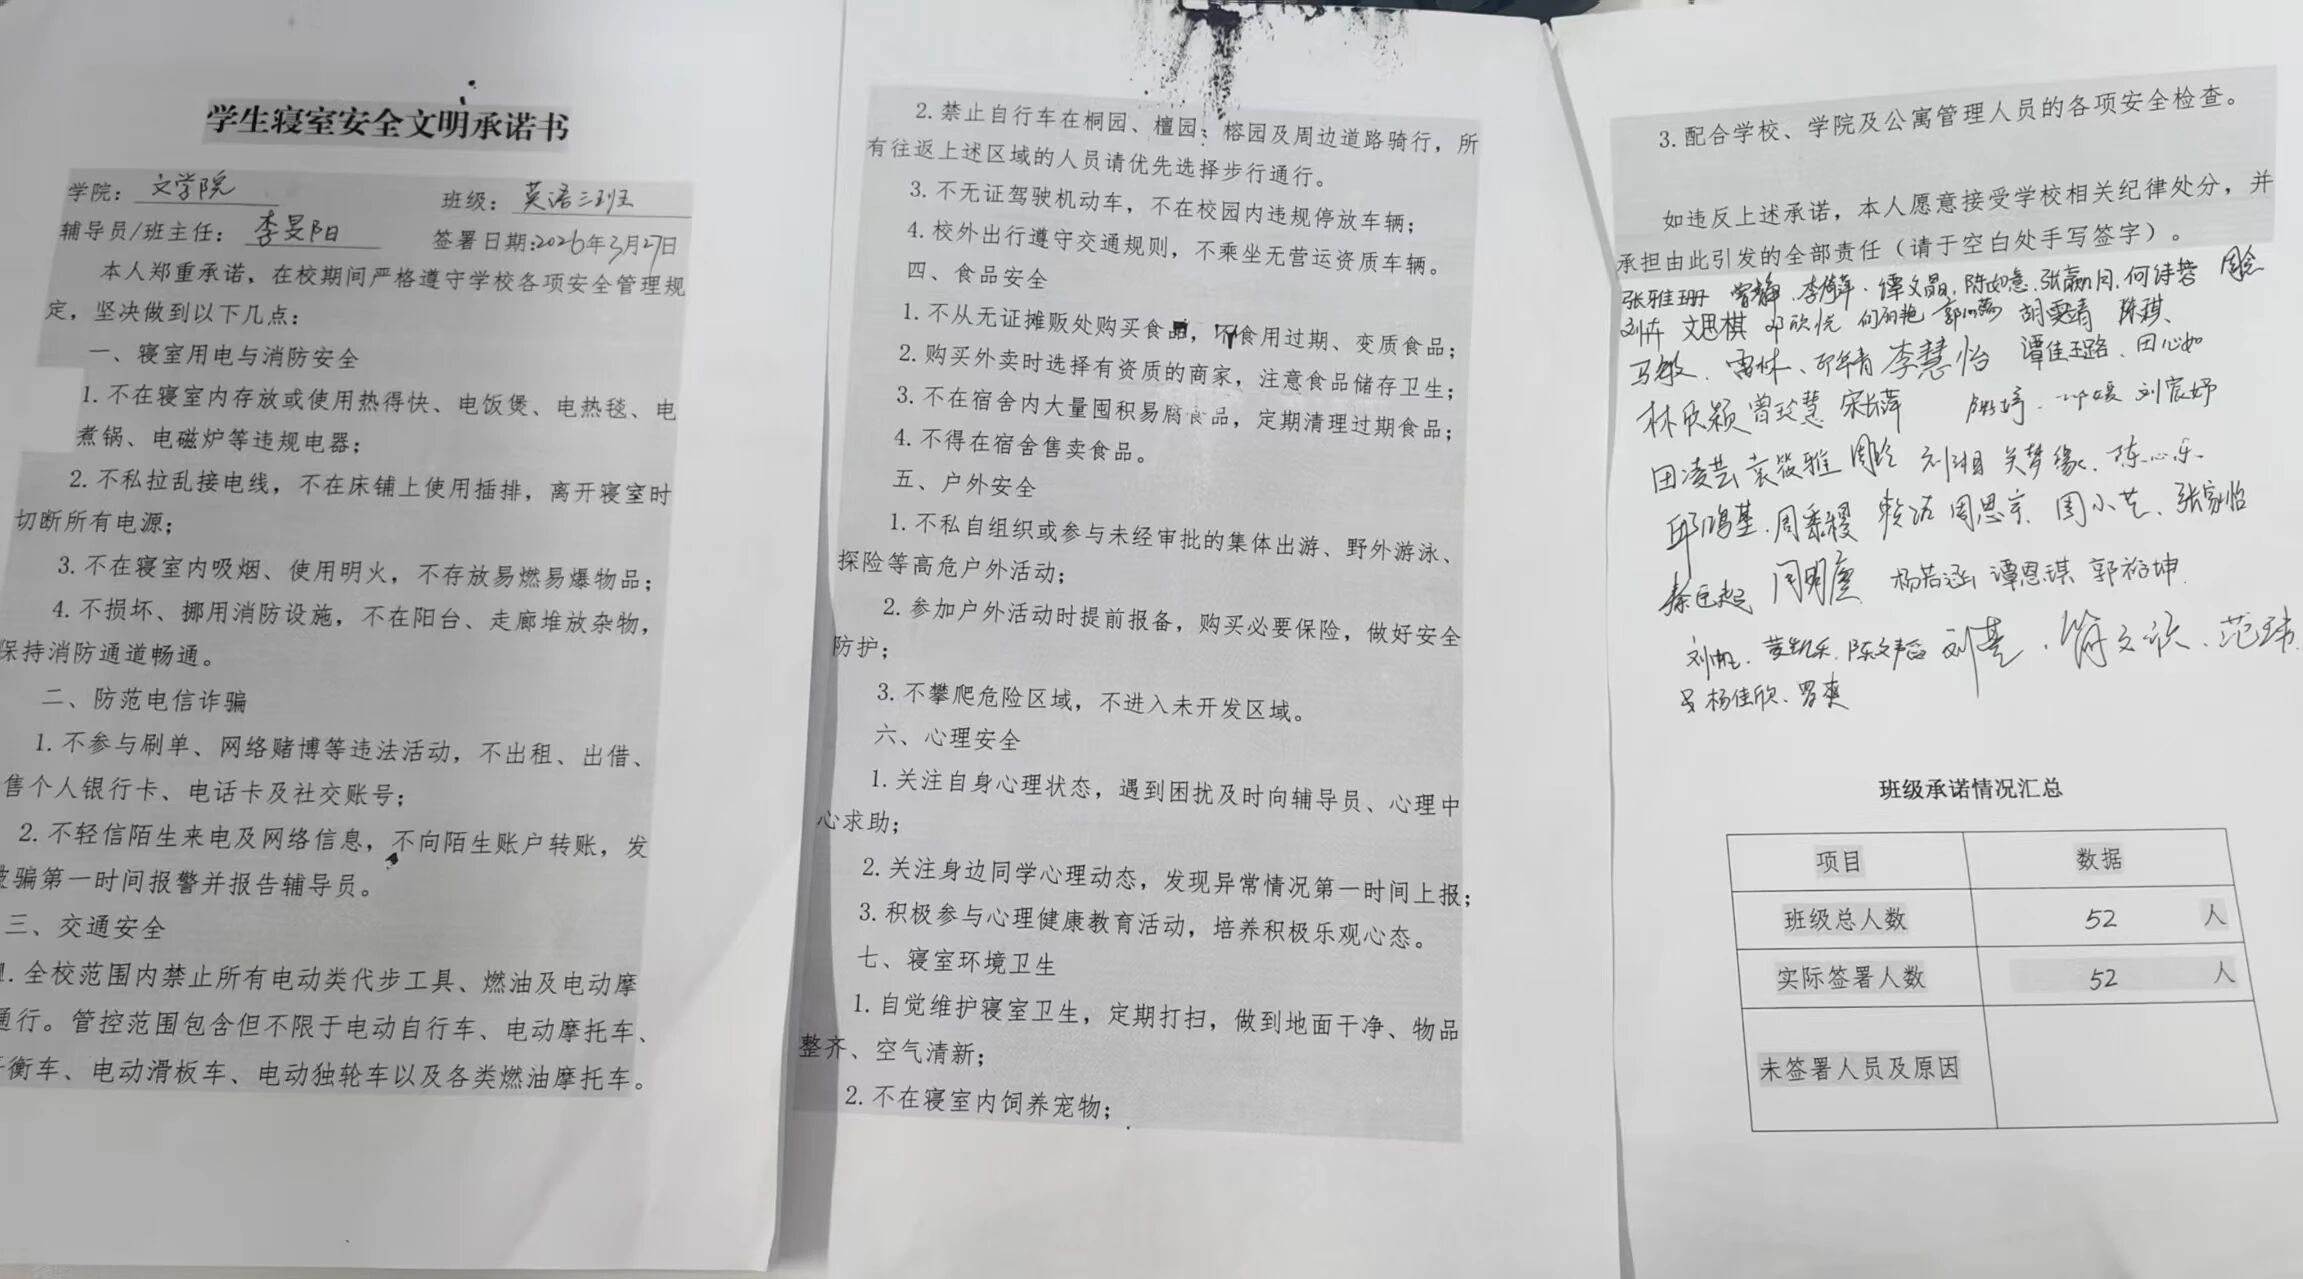 学生寝室安全文明承诺书
学院：文学院 班级：英语三班
辅导员/班主任：李旻阳 签署日期：2026年3月27日
本人郑重承诺，在校期间严格遵守学校各项安全管理规
定，坚决做到以下几点：
一、寝室用电与消防安全
1.不在寝室内存放或使用热得快、电饭煲、电热毯、电
煮锅、电磁炉等违规电器；
2.不私拉乱接电线，不在床铺上使用插排，离开寝室时
切断所有电源；
3.不在寝室内吸烟、使用明火，不存放易燃易爆物品；
4.不损坏、挪用消防设施，不在阳台、走廊堆放杂物，
保持消防通道畅通。
二、防范电信诈骗
1.不参与刷单、网络赌博等违法活动，不出租、出借、
售个人银行卡、电话卡及社交账号；
2.不轻信陌生来电及网络信息，不向陌生账户转账，发
骗第一时间报警并报告辅导员。
三、交通安全
1.全校范围内禁止所有电动类代步工具、燃油及电动摩
通行。管控范围包含但不限于电动自行车、电动摩托车、
衡车、电动滑板车、电动独轮车以及各类燃油摩托车。
2.禁止自行车在桐园、檀园、榕园及周边道路骑行，所
有往返上述区域的人员请优先选择步行通行。
3.不无证驾驶机动车，不在校园内违规停放车辆；
4.校外出行遵守交通规则，不乘坐无营运资质车辆。
四、食品安全
1.不从无证摊贩处购买食品，不食用过期、变质食品；
2.购买外卖时选择有资质的商家，注意食品储存卫生；
3.不在宿舍内大量囤积易腐食品，定期清理过期食品；
4.不得在宿舍售卖食品。
五、户外安全
1.不私自组织或参与未经审批的集体出游、野外游泳、
探险等高危户外活动；
2.参加户外活动时提前报备，购买必要保险，做好安全
防护；
3.不攀爬危险区域，不进入未开发区域。
六、心理安全
1.关注自身心理状态，遇到困扰及时向辅导员、心理中
心求助；
2.关注身边同学心理动态，发现异常情况第一时间上报；
3.积极参与心理健康教育活动，培养积极乐观心态。
七、寝室环境卫生
1.自觉维护寝室卫生，定期打扫，做到地面干净、物品
整齐、空气清新；
2.不在寝室内饲养宠物；
3.配合学校、学院及公寓管理人员的各项安全检查。
如违反上述承诺，本人愿意接受学校相关纪律处分，并
承担由此引发的全部责任（请于空白处手写签字）。
张雅珊 曾静 谭文晶 陈如意 张赢月 何诗蓉
文思棋 邓欣悦 胡雯青 陈琪
马敏 李慧怡 谭佳璐 田心如
林欣颖 曾玲慧 刘宸妤
田凌芸 袁筱雅 刘湘 关梦缘 陈心乐
邱鸿基 周思宇 周小艺 张家怡
秦臣超 杨若涵 谭恩琪 郭裕坤
刘帆 范玮
杨佳欣 罗爽
班级承诺情况汇总
项目 数据
班级总人数 52 人
实际签署人数 52 人
未签署人员及原因